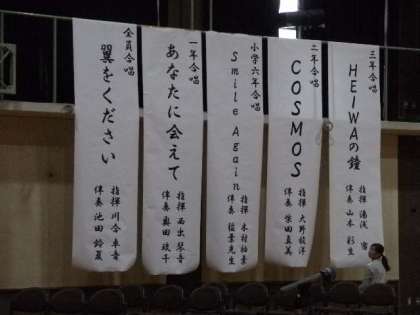 三年合唱
HEIWAの鐘
指揮 湯浅
伴奏 山本 彩生
二年合唱
COSMOS
指揮 大野
伴奏 柴田 真美
小学六年合唱
Smile Again
指揮 木村
伴奏 稲葉先生
一年合唱
あなたに会えて
指揮 西出 琴音
伴奏 奥田
全員合唱
翼をください
指揮 川合
伴奏 池田 鈴夏